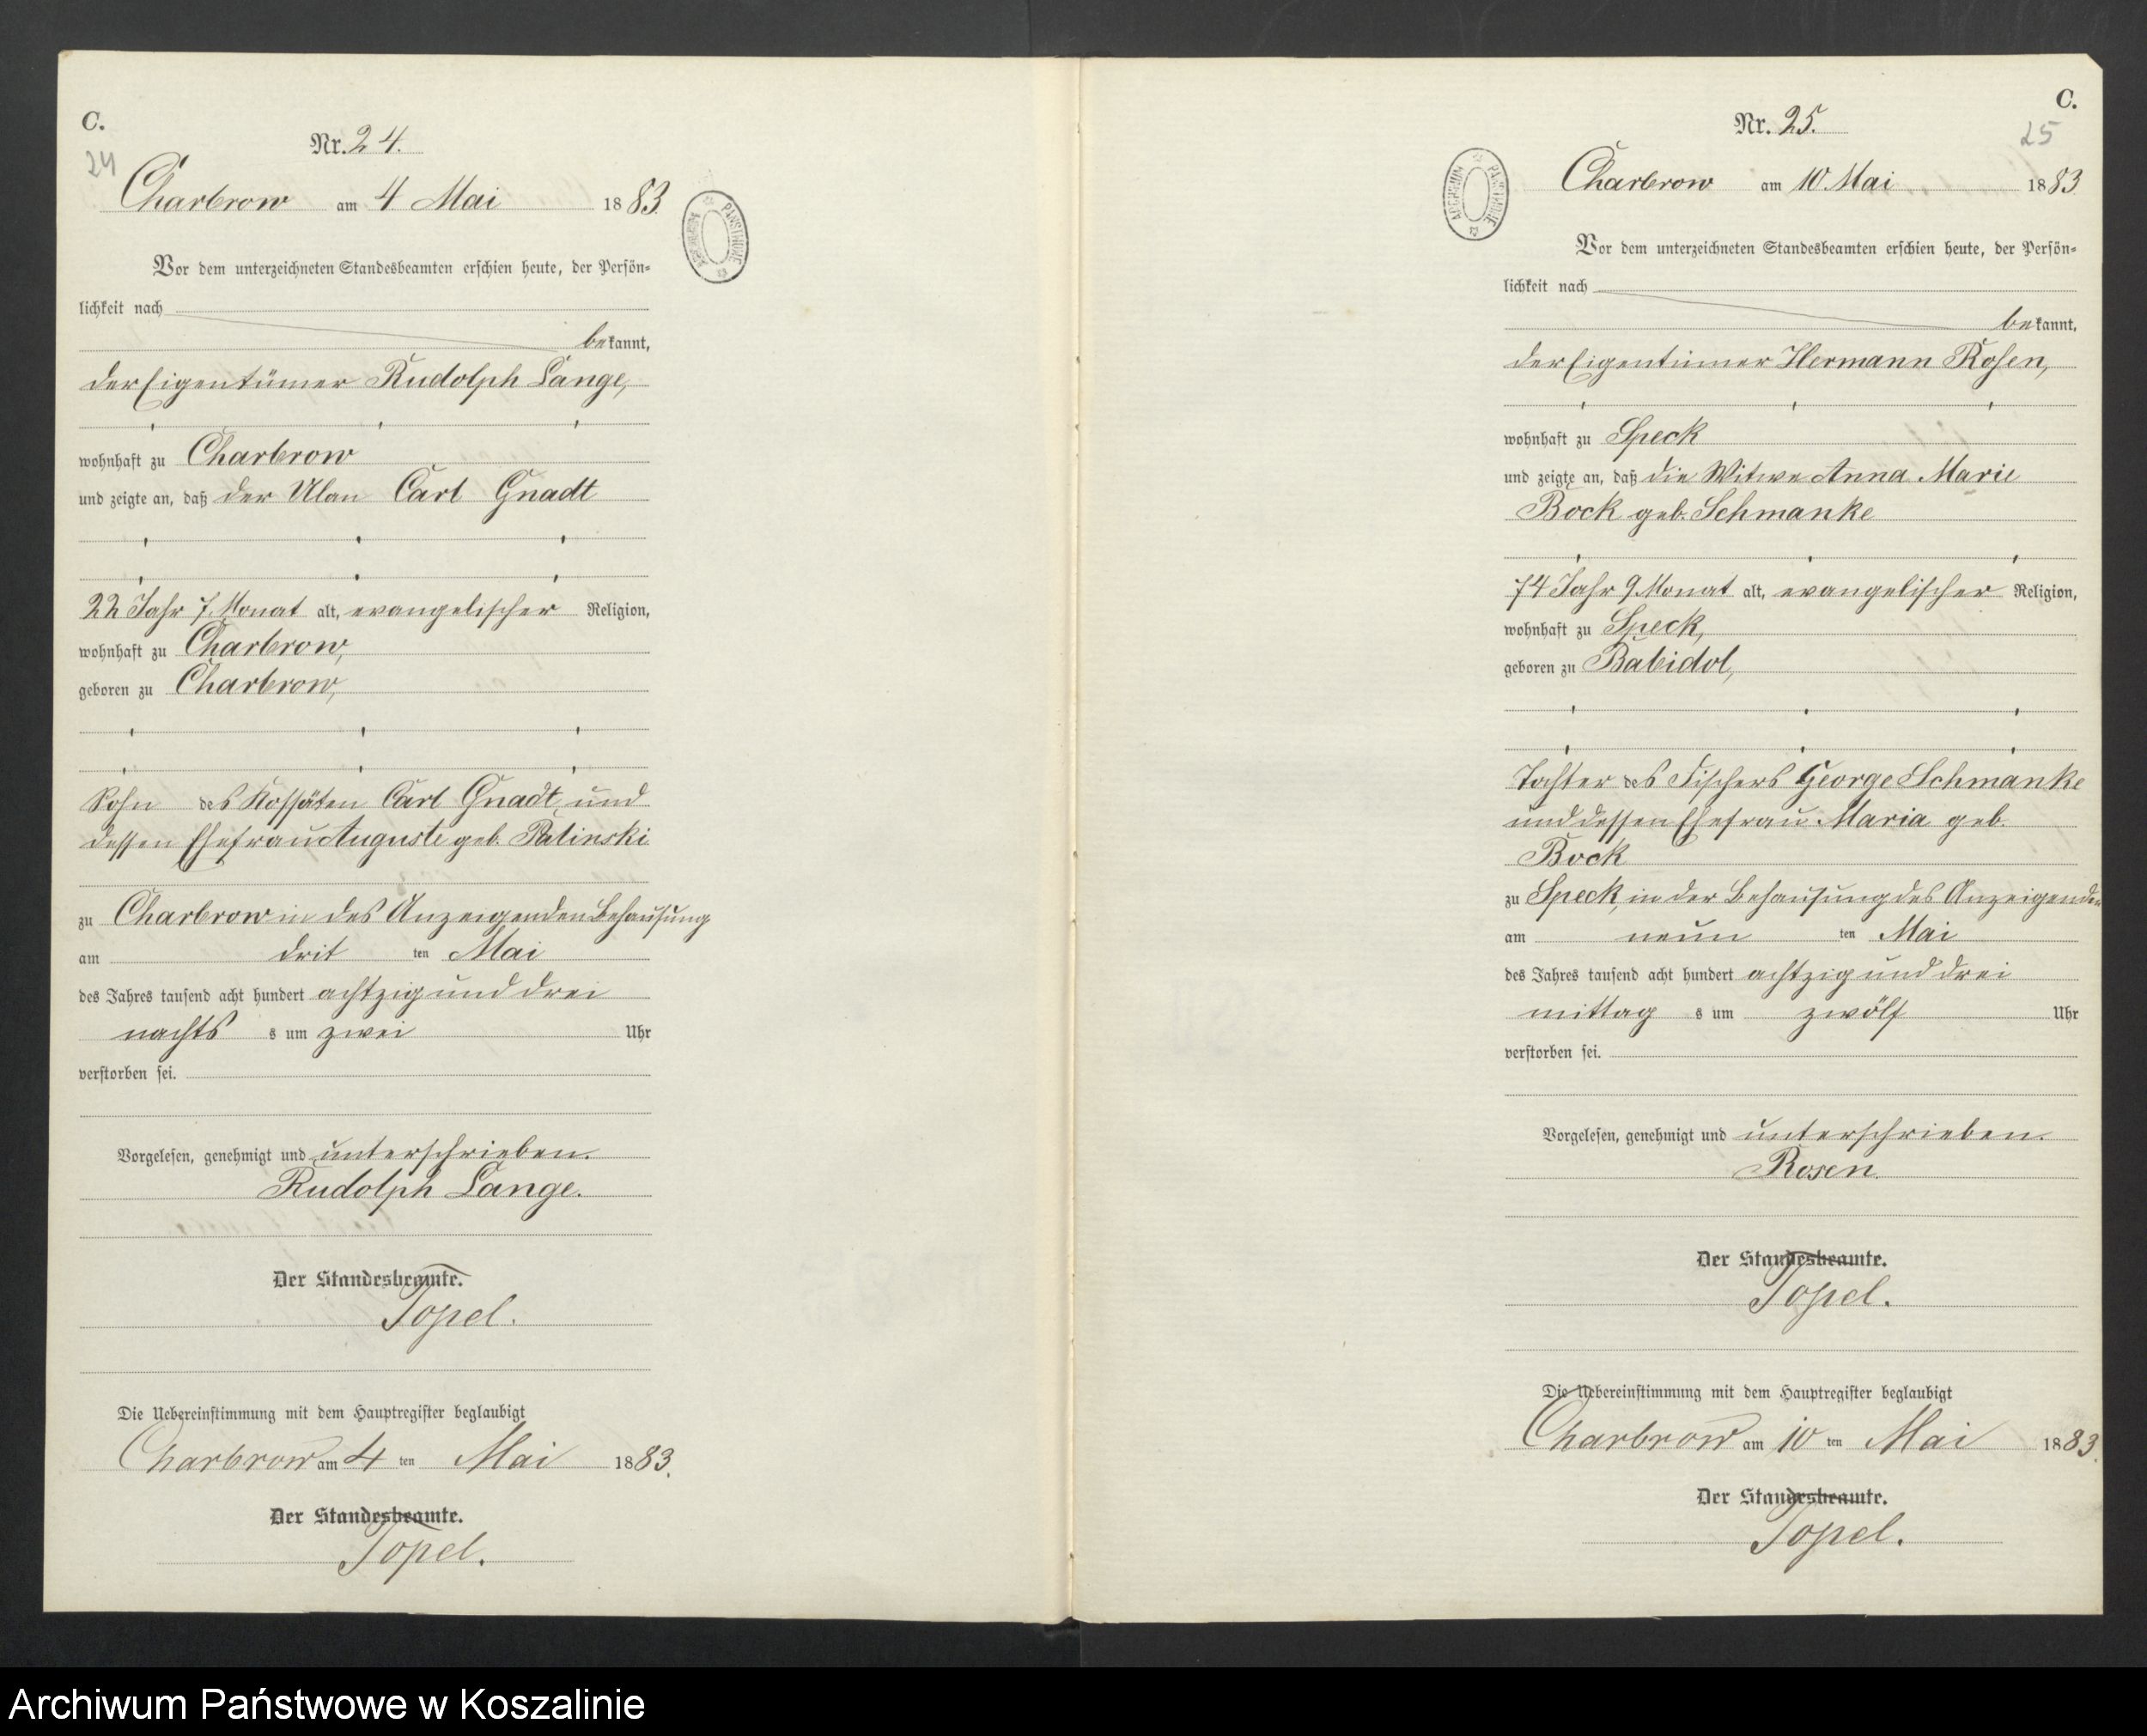 C.
24
Nr. 24.
Charbrow am 4 Mai 1883.
ARCHIWUM PAŃSTWOWE
Vor dem unterzeichneten Standesbeamten erschien heute, der Persön-
lichkeit nach
bekannt,
der Eigentümer Rudolph Lange,
wohnhaft zu Charbrow
und zeigte an, daß der Ulan Carl Gnadt
22 Jahr 7 Monat alt, evangelischer Religion,
wohnhaft zu Charbrow,
geboren zu Charbrow,
Sohn des Kossäten Carl Gnadt und
dessen Ehefrau Auguste geb. Palinski
zu Charbrow in des Anzeigenden Behausung
am dritten Mai
des Jahres tausend acht hundert achtzig und drei
nachts s um zwei Uhr
verstorben sei.
Vorgelesen, genehmigt und unterschrieben.
Rudolph Lange.
Der Standesbeamte.
Topel.
Die Uebereinstimmung mit dem Hauptregister beglaubigt
Charbrow am 4 ten Mai 1883.
Der Standesbeamte.
Topel.
C.
25
Nr. 25.
Charbrow am 10 Mai 1883
ARCHIWUM PAŃSTWOWE
Vor dem unterzeichneten Standesbeamten erschien heute, der Persön-
lichkeit nach
bekannt,
der Eigentümer Hermann Rosen,
wohnhaft zu Speck
und zeigte an, daß die Witwe Anna Marie
Bock geb. Schmanke
74 Jahr 9 Monat alt, evangelischer Religion,
wohnhaft zu Speck,
geboren zu Babidol,
Tochter des Fischers George Schmanke
und dessen Ehefrau Maria geb.
Bock
zu Speck, in der Behausung des Anzeigenden
am neun ten Mai
des Jahres tausend acht hundert achtzig und drei
mittag s um zwölf Uhr
verstorben sei.
Vorgelesen, genehmigt und unterschrieben.
Rosen.
Der Standesbeamte.
Topel.
Die Uebereinstimmung mit dem Hauptregister beglaubigt
Charbrow am 10 ten Mai 1883.
Der Standesbeamte.
Topel.
Archiwum Państwowe w Koszalinie